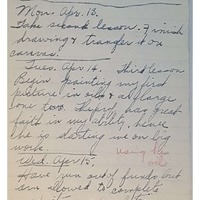 Mon. Apr. 13.
Take second lesson. Finish
drawing & transfer it on
canvas.
Tues. Apr 14. Third lesson
Begin painting my first
picture in oils & a large
one too. has great
faith in my ability, hence
she is starting me on big
work. using the
oils
Wed. Apr 15.
Have run out of funds but
am allowed to complete